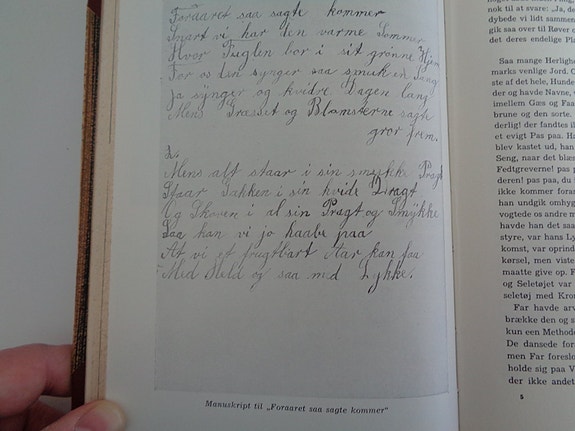 Foraaret saa sagte kommer
Snart vi har den varme Sommer
Hvor Fuglen bor i sit grønne Hjem
For os den synger saa smuk en Sang
Ja synger og kvidre Dagen lang
Mens Græsset og Blomsterne sagte
gror frem.
Mens alt staar i sin smykke Pragt
Staar Bakken i sin hvide Dragt
Og Skoven i al sin Pragt og Smykke
Saa kan vi jo haabe paa
At vi et frugtbart Aar kan faa
Med Held og saa med Lykke.
Manuskript til „Foraaret saa sagte kommer"
nok til at svare: „Ja, de
dybede vi lidt sammen
gik saa over til Røver
det deres endelige Pla
Saa mange Herlighe
marks venlige Jord. O
ste af det hele, Hunde
der og havde Navne,
imellem Gæs og Faa
brune og den sorte.
derlig! der fandtes i
et evigt Pas paa. H
blev kastet ud, han
Seng, naar det blæs
Fedtgreverne! pas p
deren! pas paa du,
ikke kommer foran
han undgik omhyg
vogtede os andre m
havde han det saa
styre, var hans Ly
komst, var oprind
kørsel, men viste
maatte give op. F
og Seletøjet var
seletøj med Kron
Far havde arv
brække den og s
kun een Methode
De dansede for
men Far foreslo
holde sig paa V
der ikke andet
5